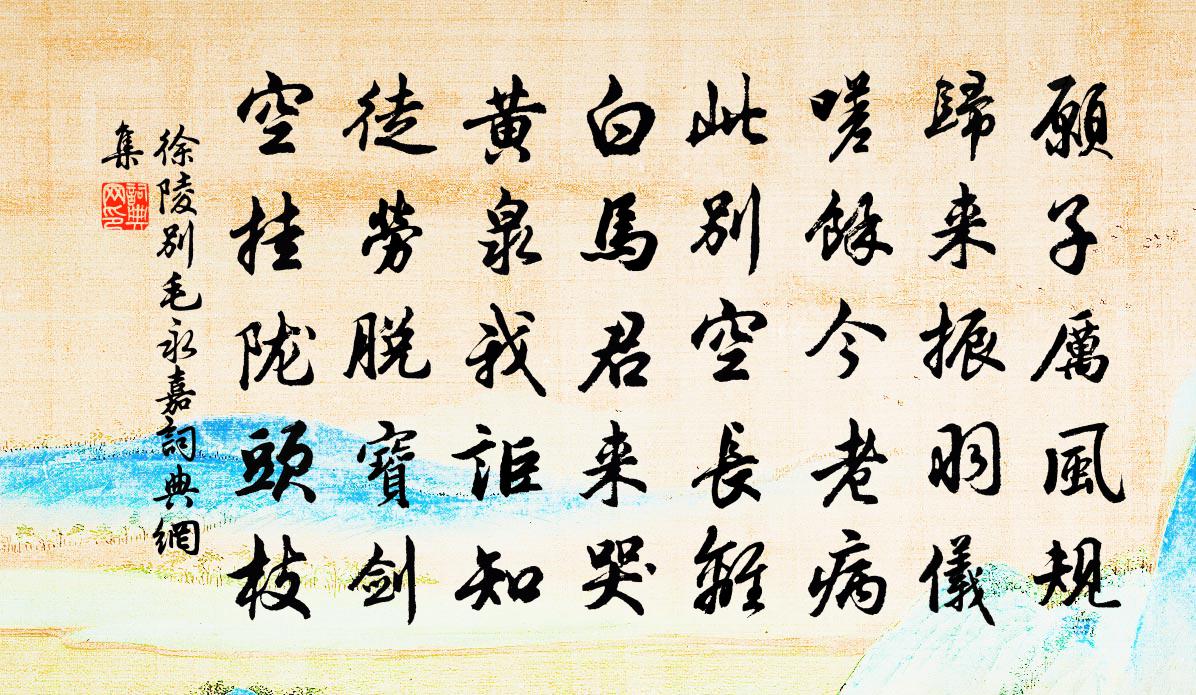 願子厲風規
歸来振羽儀
嗟餘今老病
此別空長離
白馬君来哭
黃泉我詎知
徒勞脫寶劍
空挂陇頭枝
徐陵別毛永嘉詞典網
集
詞典
网印